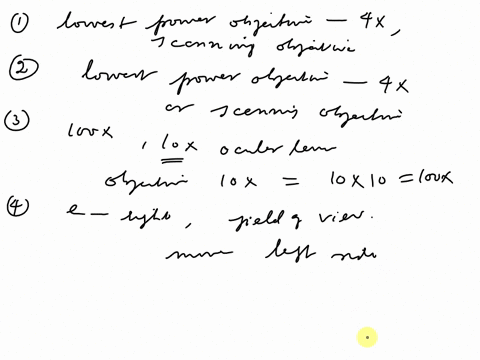 ① lowest power objective – 4x,
scanning objective
② lowest power objective – 4x
or scanning objective
③ 100x, 10x ocular lens
objective 10x = 10x10 = 100x
④ e – light, field of view.
move left side